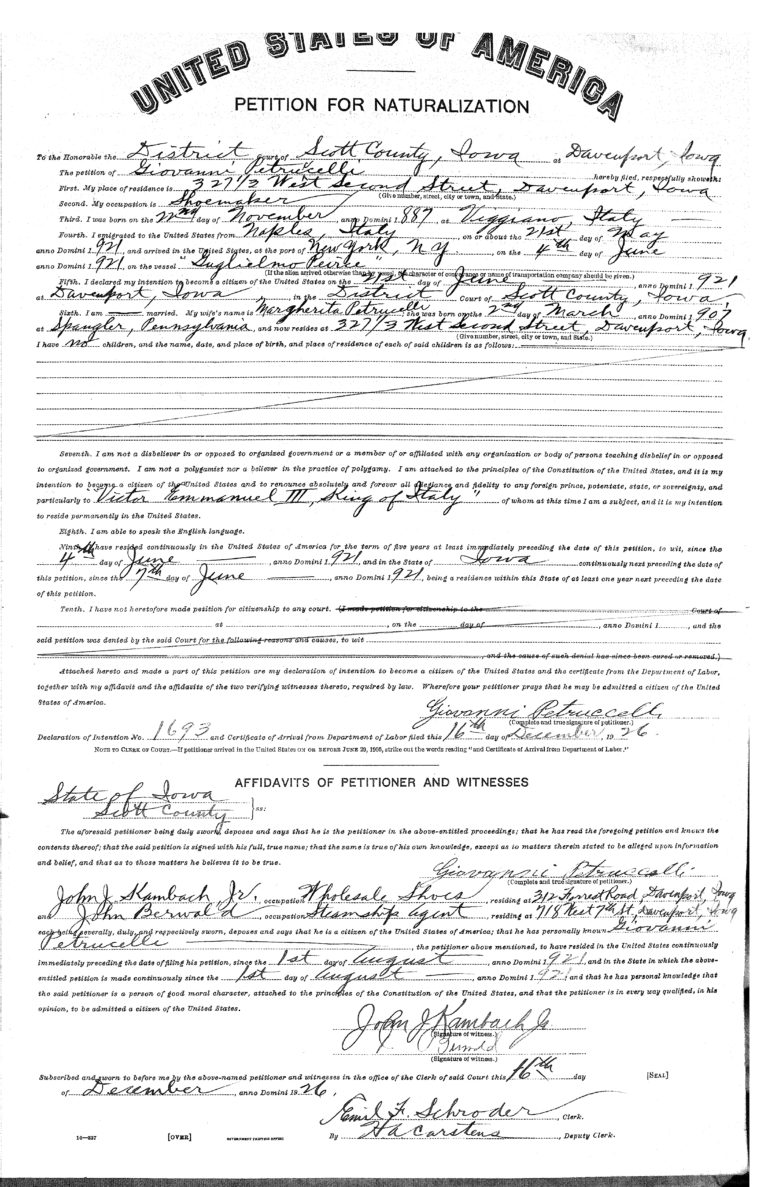 UNITED STATES OF AMERICA
PETITION FOR NATURALIZATION
To the Honorable the District Court of Scott County, Iowa at Davenport, Iowa
The petition of Giovanni Petrucelli hereby filed, respectfully showeth:
First. My place of residence is 327 1/2 West Second Street, Davenport, Iowa
(Give number, street, city or town, and State.)
Second. My occupation is Shoemaker
Third. I was born on the 22nd day of November anno Domini 1 887 at Viggiano, Italy
Fourth. I emigrated to the United States from Naples, Italy on or about the 21st day of May
anno Domini 1 921, and arrived in the United States, at the port of New York, N.Y. on the 4th day of June
anno Domini 1 921 on the vessel "Guglielmo Peirce"
(If the alien arrived otherwise than by vessel, the character of conveyance or name of transportation company should be given.)
Fifth. I declared my intention to become a citizen of the United States on the 21st day of June, anno Domini 1 921
at Davenport, Iowa, in the District Court of Scott County, Iowa
Sixth. I am married. My wife's name is Margherita Petrucelli she was born on the 2nd day of March, anno Domini 1 907
at Spangler, Pennsylvania, and now resides at 327 1/2 West Second Street, Davenport, Iowa
(Give number, street, city or town, and State.)
I have no children, and the name, date, and place of birth, and place of residence of each of said children is as follows:
Seventh. I am not a disbeliever in or opposed to organized government or a member of or affiliated with any organization or body of persons teaching disbelief in or opposed
to organized government. I am not a polygamist nor a believer in the practice of polygamy. I am attached to the principles of the Constitution of the United States, and it is my
intention to become a citizen of the United States and to renounce absolutely and forever all allegiance and fidelity to any foreign prince, potentate, state, or sovereignty, and
particularly to "Victor Emmanuel III, King of Italy" of whom at this time I am a subject, and it is my intention
to reside permanently in the United States.
Eighth. I am able to speak the English language.
Ninth. I have resided continuously in the United States of America for the term of five years at least immediately preceding the date of this petition, to wit, since the
4th day of June, anno Domini 1 921, and in the State of Iowa continuously next preceding the date of
this petition, since the 7th day of June, anno Domini 1 921, being a residence within this State of at least one year next preceding the date
of this petition.
Tenth. I have not heretofore made petition for citizenship to any court. (I made petition for citizenship to the Court of
at, on the day of, anno Domini 1, and the
said petition was denied by the said Court for the following reasons and causes, to wit
, and the cause of such denial has since been cured or removed.)
Attached hereto and made a part of this petition are my declaration of intention to become a citizen of the United States and the certificate from the Department of Labor,
together with my affidavit and the affidavits of the two verifying witnesses thereto, required by law. Wherefore your petitioner prays that he may be admitted a citizen of the United
States of America.
Giovanni Petruccelli
(Complete and true signature of petitioner.)
Declaration of Intention No. 1693 and Certificate of Arrival from Department of Labor filed this 16th day of December, 19 26.
NOTE TO CLERK OF COURT.—If petitioner arrived in the United States ON OR BEFORE JUNE 29, 1906, strike out the words reading "and Certificate of Arrival from Department of Labor."
AFFIDAVITS OF PETITIONER AND WITNESSES
State of Iowa
Scott County } ss:
The aforesaid petitioner being duly sworn, deposes and says that he is the petitioner in the above-entitled proceedings; that he has read the foregoing petition and knows the
contents thereof; that the said petition is signed with his full, true name; that the same is true of his own knowledge, except as to matters therein stated to be alleged upon information
and belief, and that as to those matters he believes it to be true.
Giovanni Petruccelli
(Complete and true signature of petitioner.)
John J. Kambach, Jr., occupation Wholesale Shoes, residing at 312 Forrest Road, Davenport, Iowa
and John Berwald, occupation Steamship agent, residing at 718 West 7th St, Davenport, Iowa
each being severally, duly, and respectively sworn, deposes and says that he is a citizen of the United States of America; that he has personally known Giovanni
Petrucelli, the petitioner above mentioned, to have resided in the United States continuously
immediately preceding the date of filing his petition, since the 1st day of August, anno Domini 1 921, and in the State in which the above-
entitled petition is made continuously since the 1st day of August, anno Domini 1 921 and that he has personal knowledge that
the said petitioner is a person of good moral character, attached to the principles of the Constitution of the United States, and that the petitioner is in every way qualified, in his
opinion, to be admitted a citizen of the United States.
John J Kambach Jr
(Signature of witness.)
(Signature of witness.)
Subscribed and sworn to before me by the above-named petitioner and witnesses in the office of the Clerk of said Court this 16th day [SEAL]
of December, anno Domini 19 26.
Emil F. Schroder, Clerk.
By H A Carstens, Deputy Clerk.
[OVER] GOVERNMENT PRINTING OFFICE